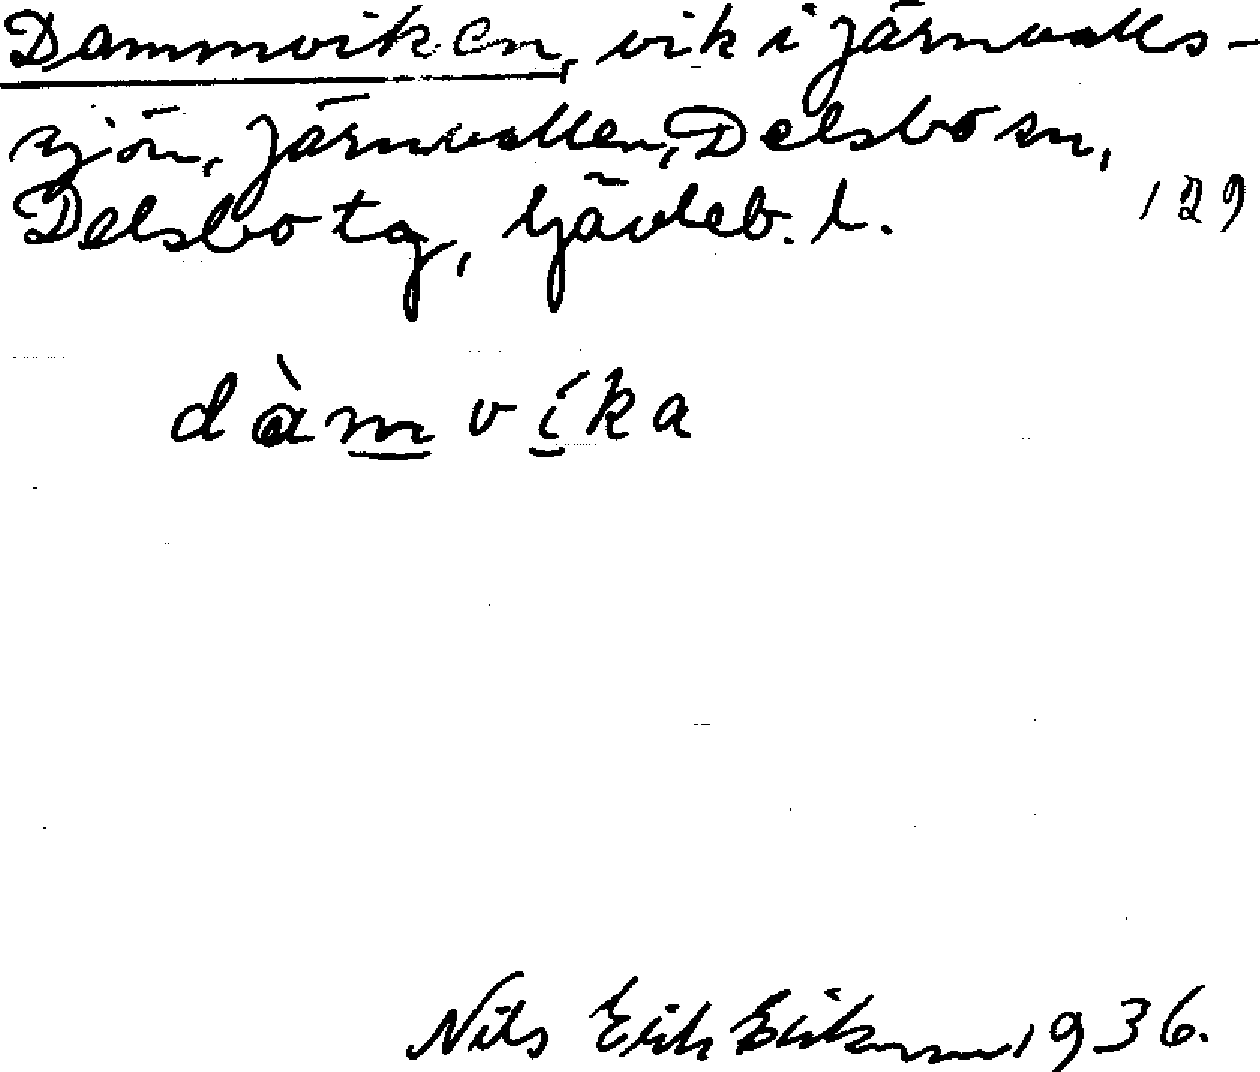 Dammviken, vik i Järnvalls-
sjön, Järnvallen, Delsbo sn,
Delsbo tg, Gävleb. l.
129
dàmvíka
Nils Erik Eriksson 1936.